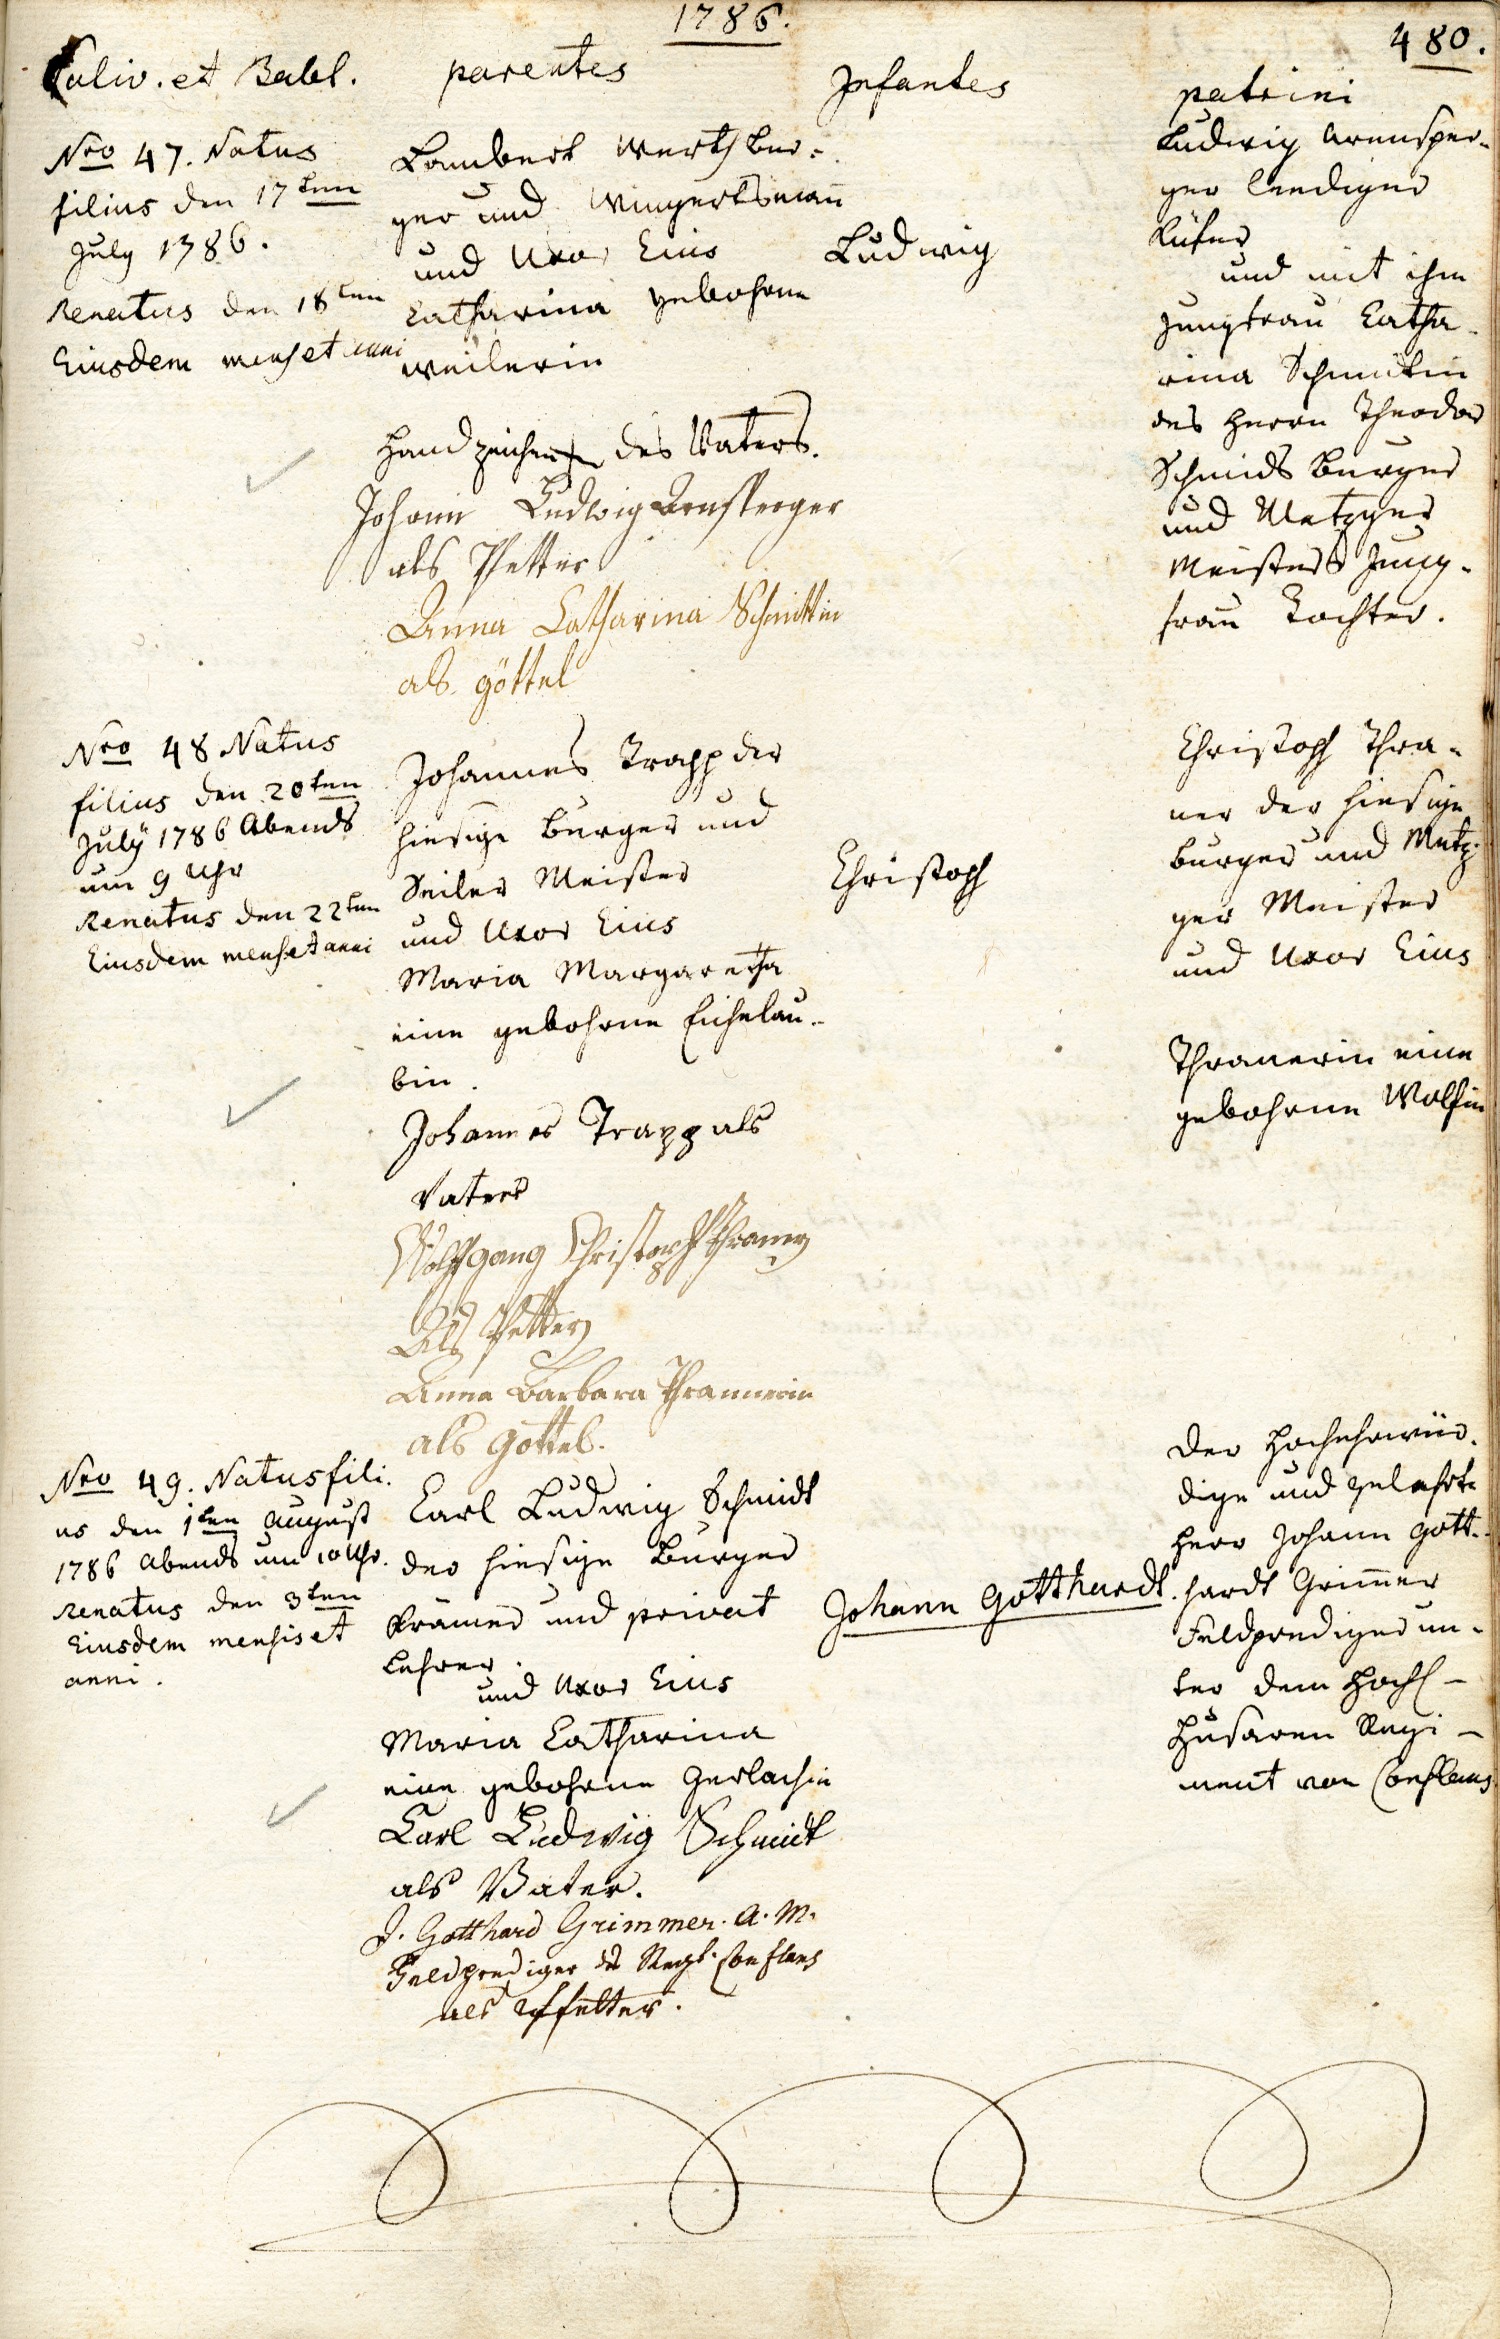 1786.
480.
Nativ. et Babt.
parentes
Infantes
patrini
Nro 47. Natus
filius den 17ten
July 1786.
Renatus den 18ten
Eiusdem mens et anni
Lambert Werth bur-
ger und Wingertsman̄
und Uxor Eius
Catharina gebohrne
Weilerin
Handzeichen des Vaters.
Johann Ludwig Arnsperger
als Petter
Anna Catharina Schmittin
als göttel
Ludwig
Ludwig Arensper-
ger leediger
Küfer
und mit ihm
Jungfrau Catha-
rina Schmitin
des Herrn Theodor
Schmids Burger
und Metzger
Meisters Jung-
frau Tochter.
Nro 48 Natus
filius den 20ten
July 1786 Abends
um 9 Uhr
Renatus den 22ten
Eiusdem mens et anni
Johannes Trapp der
hiesige Burger und
Seiler Meister
und Uxor Eius
Maria Margaretha
eine gebohrne Eichelau-
bin.
Johannes Trapp als
Vatter
Wolffgang Christoph Thraner
Als Petter
Anna Barbara Thrannerin
als Gottel.
Christoph
Christoph Thra-
ner der hiesige
burger und Metz-
ger Meister
und Uxor Eius
Thranerin eine
gebohrne Wolfin
Nro 49. Natus fili-
us den 1ten August
1786 Abends um 10 Uhr.
Renatus den 3ten
Eiusdem mensis et
anni.
Carl Ludwig Schmidt
der hiesige Burger
Krämer und privat
Lehrer.
und Uxor Eius
Maria Catharina
eine gebohrne Gerlachin
Carl Ludwig Schmidt
als Vater.
J. Gotthard Grimmer. A. M.
Feldprediger des Regt. Conflans
als Pfetter.
Johann Gotthardt
Der Hochehrwür-
dige und gelehrte
Herr Johann Gott-
hardt Grimmer
Feldprediger un-
ter dem Hochl-
Husaren Regi-
ment von Conflans